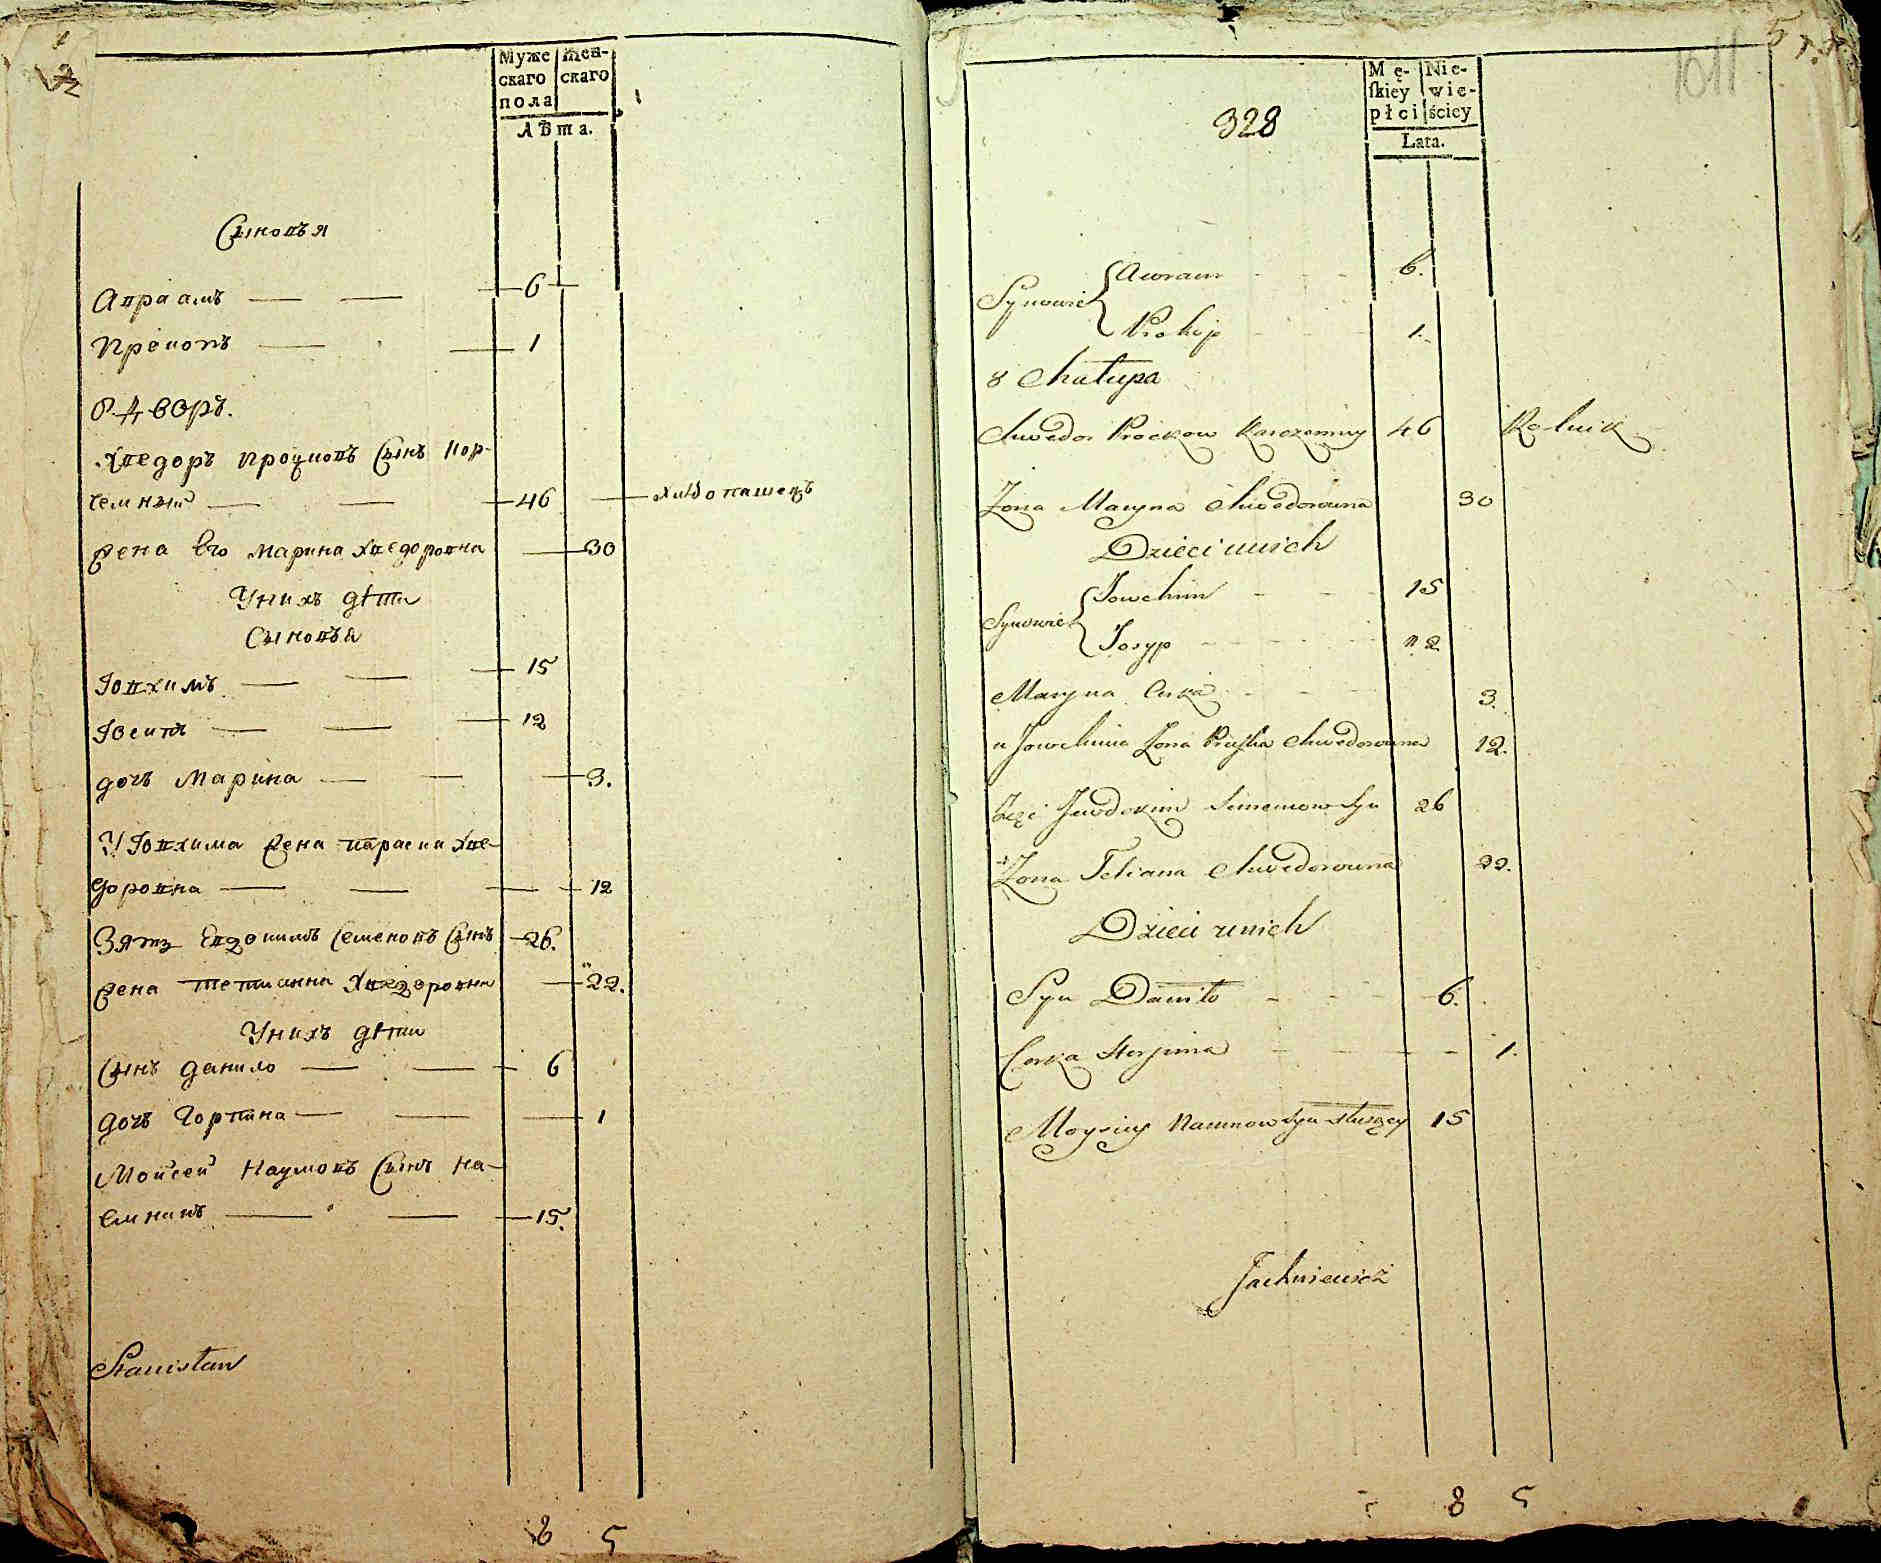 Муже
скаго
пола
Жен-
скаго
Лѣта.
Сыновья
Авраамъ — — 6
Прокопъ — — 1
8 дворъ.
Хведоръ Процковъ Сынъ Кор-
чемный — — 46 — хлѣбопашецъ
Жена Его Марина Хведоровна — 30
Унихъ дѣти
Сыновья
Іовхимъ — — 15
Іосипъ — — 12
дочь Марина — — 3.
У Іовхима Жена Параска Хве-
доровна — — 12
Зять Евдокимъ Семеновъ Сынъ 26.
Жена Тетианна Хведоровна — 22.
Унихъ дѣти
Сынъ Данило — — 6
дочь Горпина — — 1
Мойсей Наумовъ Сынъ На-
емникъ — — 15.
Stanisław
8 5
5
1011
328
Mę-
ſkiey
płci
Nie-
wie-
ściey
Lata.
Synowie { Awram - - - 6.
Prokop - - - 1.
8 Chałupa
Chwedor Prockow Karczemny 46 Rolnik
Żona Maryna Chwedorowna 30
Dzieci unich
Synowie { Jowchim - - - 15
Josyp - - - 12
Maryna Curka - - - 3.
u Jowchima Żona Praſka Chwedorowna 12.
Zięć Jewdokim Simenow Syn 26
Żona Tetiana Chwedorowna 22.
Dzieci unich
Syn Daniło - - - 6.
Corka Horpina - - - 1.
Moysiey Naumow Syn służący 15
Jachniewicz
8 5